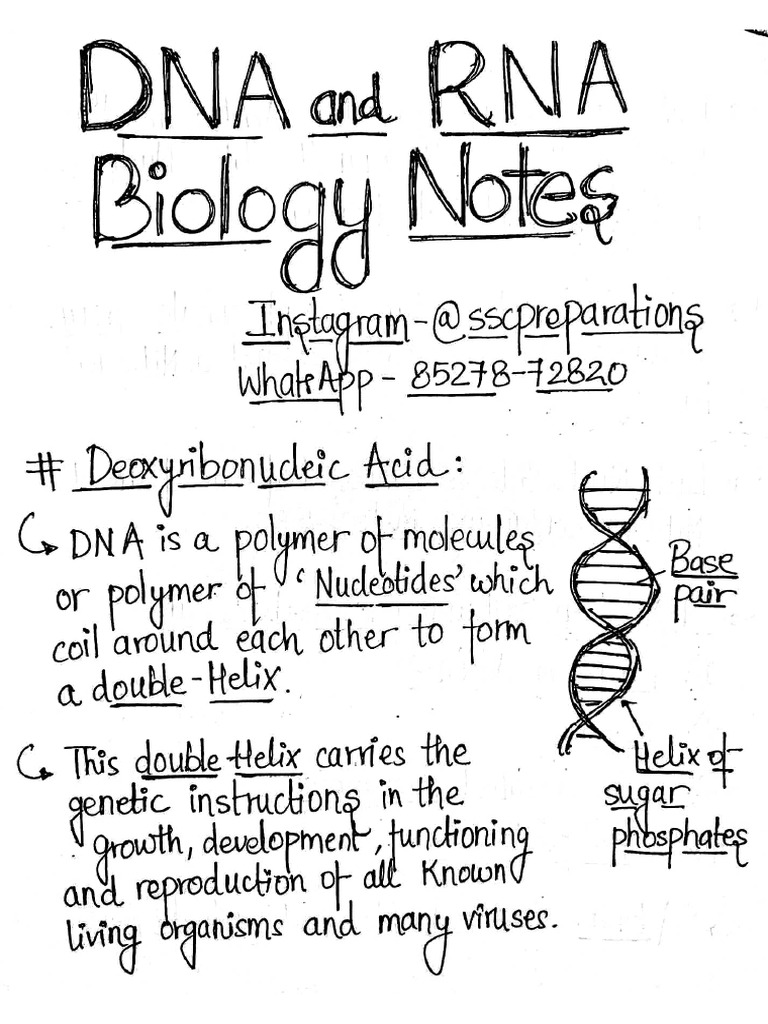 DNA and RNA
Biology Notes
Instagram - @sscpreparations
WhatsApp - 85278-72820
# Deoxyribonucleic Acid :
DNA is a polymer of molecules
or polymer of 'Nucleotides' which
coil around each other to form
a double-Helix.
Base
pair
This double-Helix carries the
genetic instructions in the
growth, development, functioning
and reproduction of all Known
living organisms and many viruses.
Helix of
sugar
phosphates